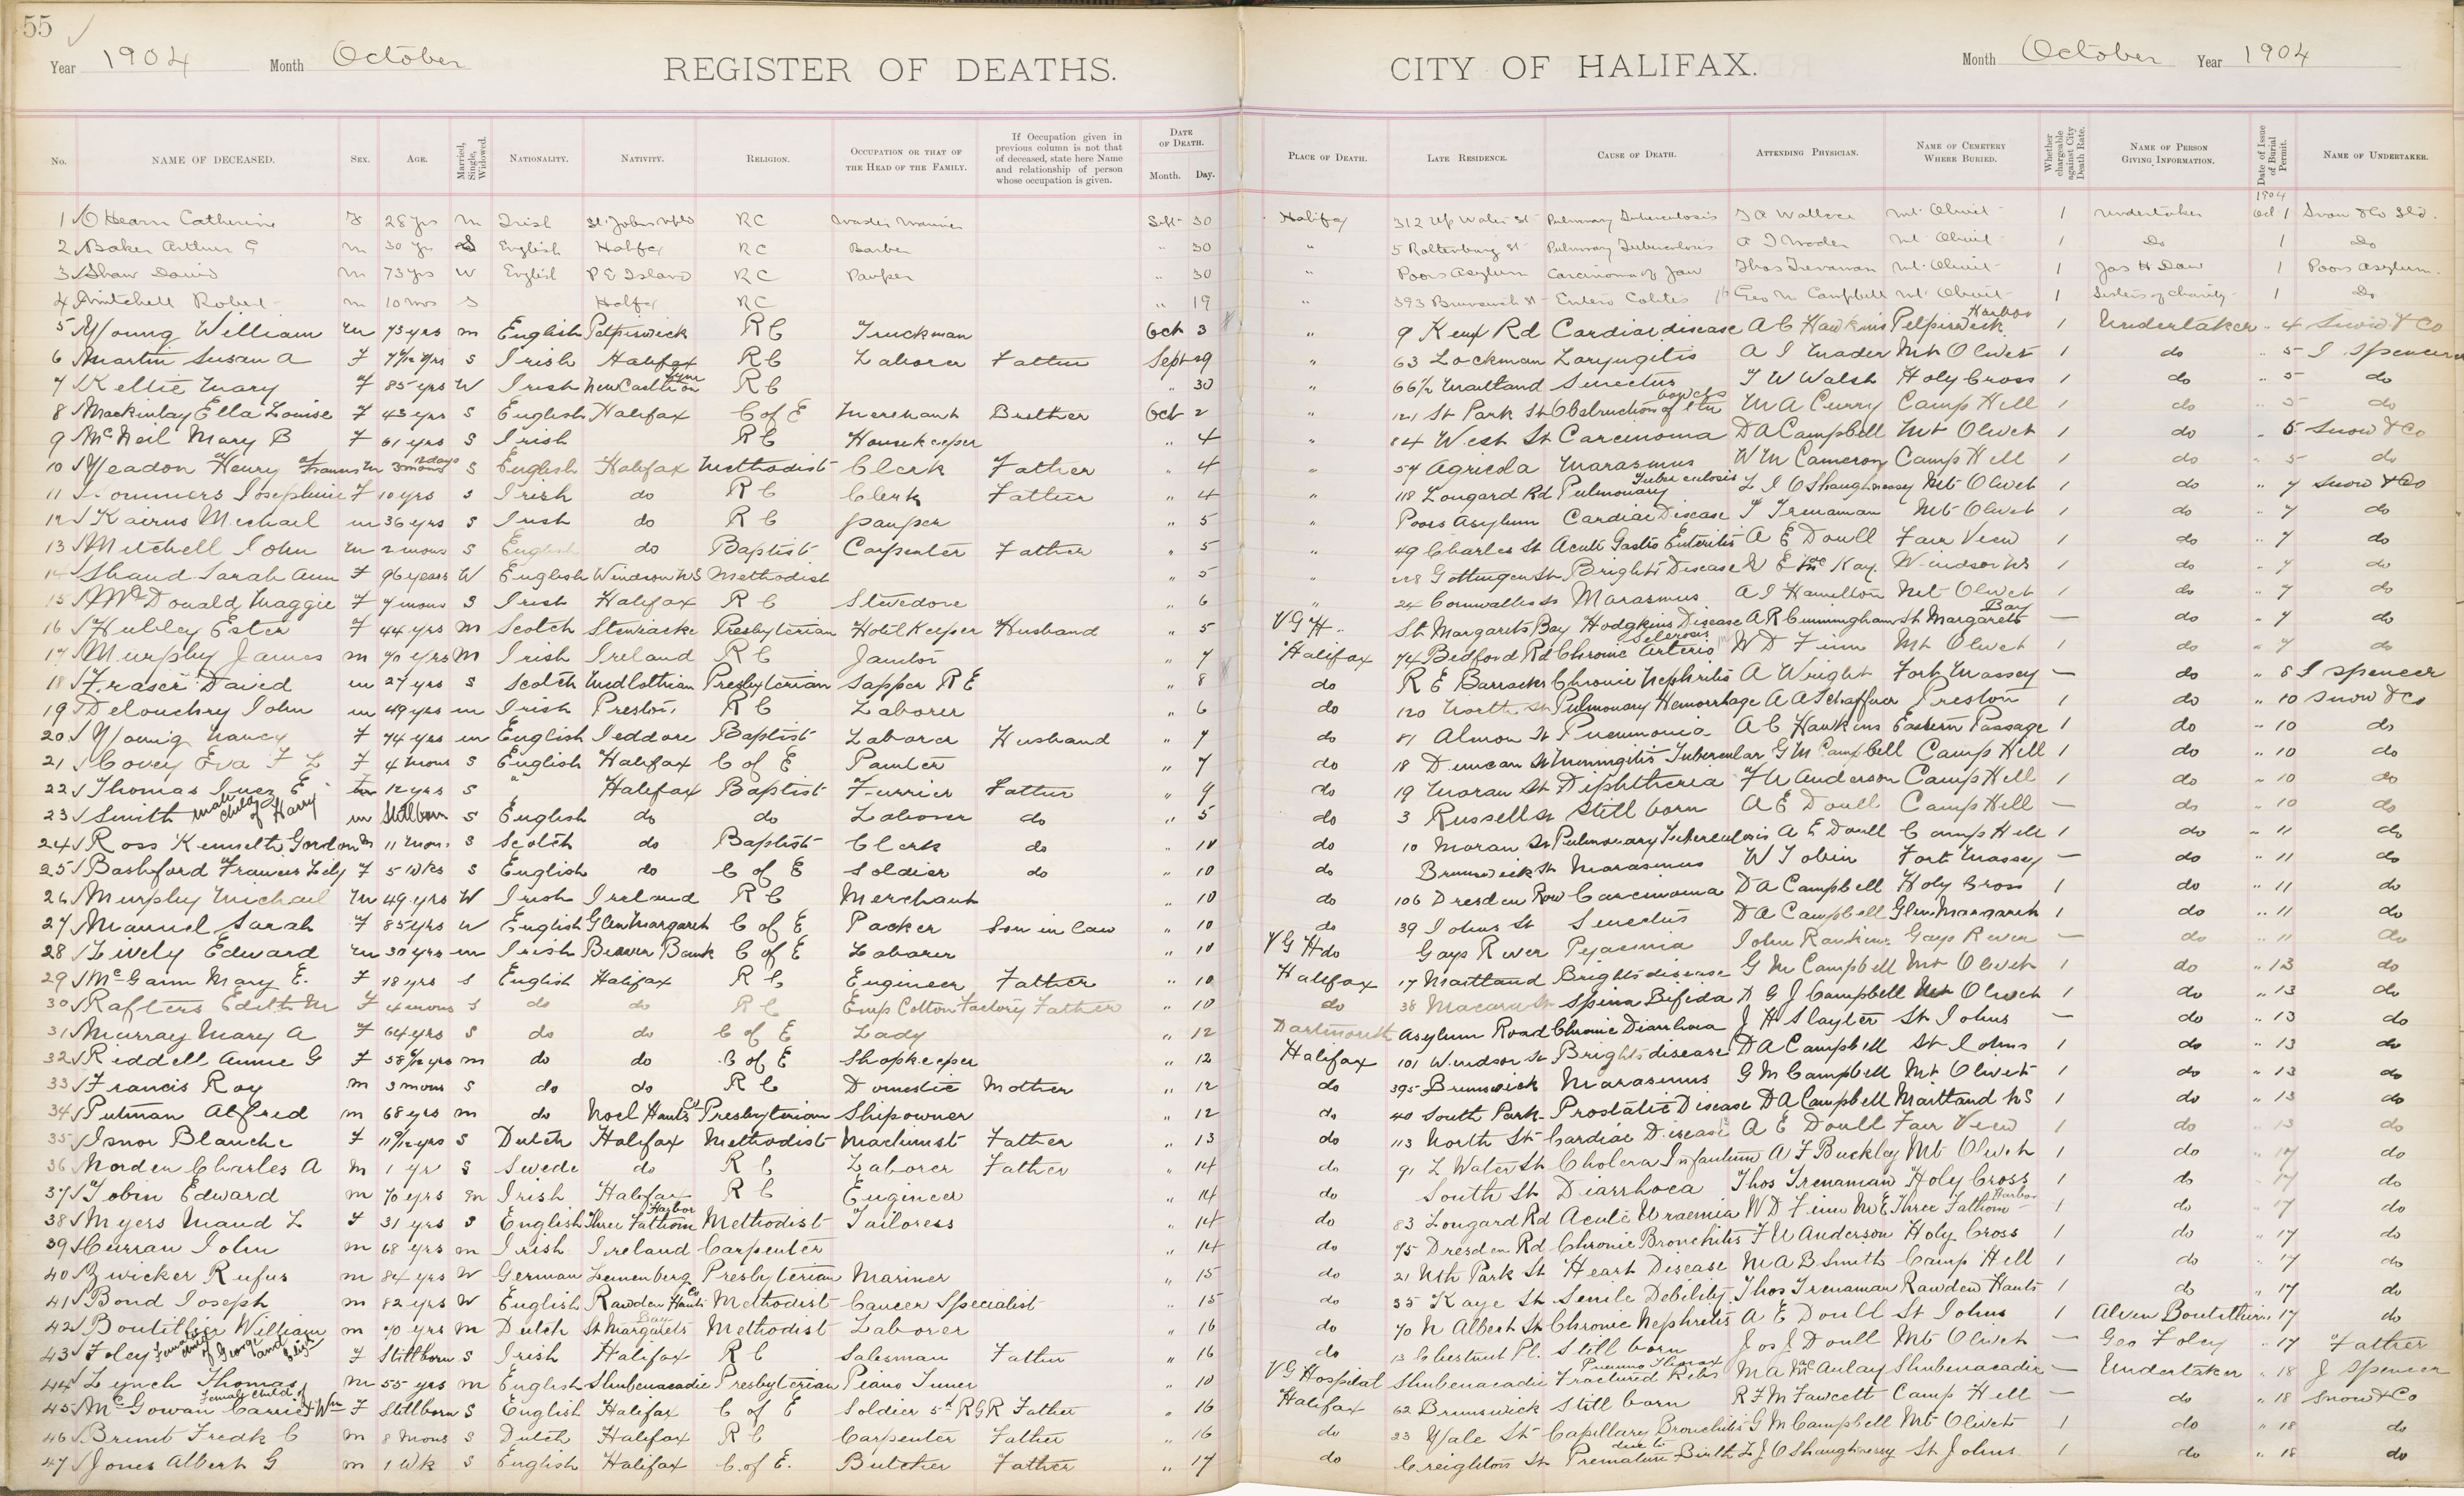 55
Year 1904 Month October REGISTER OF DEATHS. CITY OF HALIFAX. Month October Year 1904
No. NAME OF DECEASED. SEX. AGE. Married, Single, Widowed. NATIONALITY. NATIVITY. RELIGION. OCCUPATION OR THAT OF THE HEAD OF THE FAMILY. If Occupation given in previous column is not that of deceased, state here Name and relationship of person whose occupation is given. DATE OF DEATH. Month. Day. PLACE OF DEATH. LATE RESIDENCE. CAUSE OF DEATH. ATTENDING PHYSICIAN. NAME OF CEMETERY WHERE BURIED. Whether chargeable against City Death Rate. NAME OF PERSON GIVING INFORMATION. Date of Issue of Burial Permit. NAME OF UNDERTAKER.
1904
1 O Hearn Catherine F 28 yrs m Irish St. Johns Nfld RC Sept 30 Halifax 312 Up Water St Pulmonary Tuberculosis Wallace Mt Olivet 1 Undertaker Oct 1 Snow & Co Ltd.
2 Baker Arthur G m 30 yr S English Halifax RC Barber " 30 " 5 Rottenburg St Pulmonary Tuberculosis A I Mader Mt Olivet 1 Do 1 Do
3 Shaw David m 73 yrs W English P E Island RC Pauper " 30 " Poors Asylum Carcinoma of Jaw Thos Trenaman Mt Olivet 1 Jas H Daw 1 Poors Asylum.
4 Mitchell Robert m 10 mos S Halifax RC " 19 " 393 Brunswick St Entero Colitis Geo M Campbell Mt Olivet 1 Sisters of Charity 1 Do
5 Young William m 73 yrs m English Petpiswick R C Truckman Oct 3 " 9 Kemp Rd Cardiac disease A C Hawkins Petpiswick Harbor 1 Undertaker " 4 Snow & Co
6 Martin Susan A F yrs S Irish Halifax R C Laborer Father Sept 29 " 63 Lockman Laryngitis A I Mader Mt Olivet 1 do " 5 J Spencer
7 Kellie Mary F 85 yrs W Irish New Castle on Tyne R C " 30 " 66½ Maitland Senectus T W Walsh Holy Cross 1 do " 5 do
8 Mackinlay Ella Louise F 43 yrs S English Halifax C of E Merchant Brother Oct 2 " 121 St Park St Obstruction of the bowels M A Curry Camp Hill 1 do " 5 do
9 McNeil Mary B F 61 yrs S Irish R C Housekeeper " 4 " 84 West St Carcinoma D A Campbell Mt Olivet 1 do " 5 Snow & Co
10 Yeadon Henry of Francis m 3 mons 2 days S English Halifax Methodist Clerk Father " 4 " 54 Agricola Marasmus W M Cameron Camp Hill 1 do " 5 do
11 Sommers Josephine F 10 yrs S Irish do R C Clerk Father " 4 " 118 Longard Rd Pulmonary Tuberculosis L J O Shaughnessy Mt Olivet 1 do " 7 Snow & Co
12 Kairns Michael m 36 yrs S Irish do R C pauper " 5 " Poors Asylum Cardiac Disease T Trenaman Mt Olivet 1 do " 7 do
13 Mitchell John m 2 mons S English do Baptist Carpenter Father " 5 " 49 Charles St Acute Gastro Enteritis A E Doull Fair View 1 do " 7 do
14 Shand Sarah Ann F 96 years W English Windsor NS Methodist " 5 " 228 Gottingen St Brights Disease E McKay Windsor NS 1 do " 7 do
15 McDonald Maggie F 7 mons S Irish Halifax R C Stevedore " 6 " 24 Cornwallis St Marasmus A I Hamilton Mt Olivet 1 do " 7 do
16 Hubley Ester F 44 yrs m Scotch Stewiacke Presbyterian Hotel Keeper Husband " 5 V G H St Margarets Bay Hodgkins Disease A R Cunningham St Margarets Bay — do " 7 do
17 Murphy James m 70 yrs M Irish Ireland R C Janitor " 7 Halifax 74 Bedford Rd Chronic Arterio Sclerosis W D Finn Mt Olivet 1 do " 7 do
18 Fraser David m 27 yrs S Scotch Midlothian Presbyterian Sapper R E " 8 do R E Barracks Chronic Nephritis A Wright Fort Massey — do " 8 J Spencer
19 Delouchry John m 49 yrs m Irish Preston R C Laborer " 6 do 120 North St Pulmonary Hemorrhage A A Schaffner Preston 1 do " 10 Snow & Co
20 Young Nancy F 74 yrs m English Jeddore Baptist Laborer Husband " 7 do 81 Almon St Pneumonia A C Hawkins Eastern Passage 1 do " 10 do
21 Covey Eva F L F 4 mons S English Halifax C of E Painter " 7 do 18 Duncan St Meningitis Tubercular G M Campbell Camp Hill 1 do " 10 do
22 Thomas Inez E F 12 yrs S " Halifax Baptist Furrier Father " 9 do 19 Moran St Diphtheria F U Anderson Camp Hill 1 do " 10 do
23 Smith male child of Harry m Stillborn S English do do Laborer do " 5 do 3 Russell St Still born A E Doull Camp Hill — do " 10 do
24 Ross Kenneth Gordon m 11 mons S Scotch do Baptist Clerk do " 10 do 10 Moran St Pulmonary Tuberculosis A E Doull Camp Hill 1 do " 11 do
25 Bashford Francis Lily F 5 wks S English do C of E Soldier do " 10 do Brunswick St Marasmus W Tobin Fort Massey — do " 11 do
26 Murphy Michael m 49 yrs W Irish Ireland R C Merchant " 10 do 106 Dresden Row Carcinoma D A Campbell Holy Cross 1 do " 11 do
27 Mannel Sarah F 85 yrs W English Glen Margaret C of E Packer Son in law " 10 do 39 Johns St Senectus D A Campbell Glen Margaret 1 do " 11 do
28 Lively Edward m 30 yrs m Irish Beaver Bank C of E Laborer " 10 V G H do Gays River Pyaemia John Rankine Gays River — do " 11 do
29 McGann Mary E. F 18 yrs S English Halifax R C Engineer Father " 10 Halifax 17 Maitland Brights disease G M Campbell Mt Olivet 1 do " 13 do
30 Rafters Edith M F 4 mons S do do R C Emp Cotton Factory Father " 10 do 38 Macara St Spina Bifida D G J Campbell Mt Olivet 1 do " 13 do
31 Murray Mary A F 64 yrs S do do C of E Lady " 12 Dartmouth Asylum Road Chronic Diarrhoea J H Slayter St Johns — do " 13 do
32 Riddell Annie G F yrs m do do C of E Shopkeeper " 12 Halifax 101 Windsor St Brights disease D A Campbell St Johns 1 do " 13 do
33 Francis Roy m 3 mons S do do R C Domestic Mother " 12 do 395 Brunswick Marasmus G M Campbell Mt Olivet 1 do " 13 do
34 Putman Alfred m 68 yrs m do Noel Hants Co Presbyterian Shipowner " 12 do 40 South Park Prostatic Disease D A Campbell Maitland NS 1 do " 13 do
35 Isnor Blanche F yrs S Dutch Halifax Methodist Machinist Father " 13 do 113 North St Cardiac Disease A E Doull Fair View 1 do " 13 do
36 Norden Charles A m 1 yr S Swede do R C Laborer Father " 14 do 91 L Water St Cholera Infantum A F Buckley Mt Olivet 1 do " 17 do
37 Tobin Edward m 70 yrs m Irish Halifax R C Engineer " 14 do South St Diarrhoea Thos Trenaman Holy Cross 1 do " 17 do
38 Myers Maud L F 31 yrs S English Three Fathom Harbor Methodist Tailoress " 14 do 83 Longard Rd Acute Uraemia W D Finn Three Fathom Harbor 1 do " 17 do
39 Curran John m 68 yrs m Irish Ireland Carpenter " 14 do 75 Dresden Rd Chronic Bronchitis F U Anderson Holy Cross 1 do " 17 do
40 Zwicker Rufus m 84 yrs W German Lunenberg Presbyterian Mariner " 15 do 21 Nth Park St Heart Disease M A B Smith Camp Hill 1 do " 17 do
41 Bond Joseph m 82 yrs W English Rawdon Hants Co Methodist Cancer Specialist " 15 do 35 Kaye St Senile Debility Thos Trenaman Rawdon Hants 1 do " 17 do
42 Boutillier William m 70 yrs m Dutch St Margarets Bay Methodist Laborer " 16 do 70 N Albert St Chronic Nephritis A E Doull St Johns 1 Alven Boutillier " 17 do
43 Foley of George and F Stillborn S Irish Halifax R C Salesman Father " 16 do 13 Chestnut Pl. Still born Jos J Doull Mt Olivet — Geo Foley " 17 Father
44 Lynch Thomas m 55 yrs m English Shubenacadie Presbyterian Piano Tuner " 10 V G Hospital Shubenacadie Fractured Ribs Pneumo Thorax M A McAulay Shubenacadie — Undertaker " 18 J Spencer
45 McGowan Female child of Carrie & Wm F Stillborn S English Halifax C of E Soldier 5th R G R Father " 16 Halifax 62 Brunswick Still born R F M Fawcett Camp Hill — do " 18 Snow & Co
46 Brunt Fredk C m 8 mons S Dutch Halifax R C Carpenter Father " 16 do 23 Yale St Capillary Bronchitis G M Campbell Mt Olivet 1 do " 18 do
47 Jones Albert G m 1 wk S English Halifax C. of E. Butcher Father " 17 do Creighton St due to Premature Birth L J O Shaughnessy St Johns 1 do " 18 do